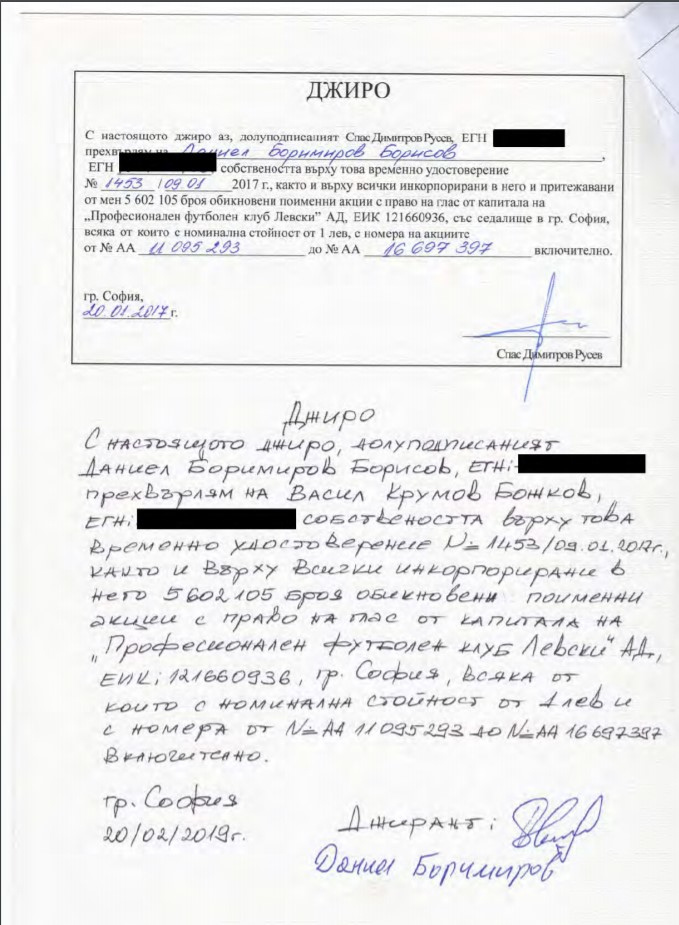 ДЖИРО
С настоящото джиро аз, долуподписаният Спас Димитров Русев, ЕГН
прехвърлям на Даниел Боримиров Борисов,
ЕГН собствеността върху това временно удостоверение
№ 1453 /09.01 2017 г., както и върху всички инкорпорирани в него и притежавани
от мен 5 602 105 броя обикновени поименни акции с право на глас от капитала на
„Професионален футболен клуб Левски" АД, ЕИК 121660936, със седалище в гр. София,
всяка от които с номинална стойност от 1 лев, с номера на акциите
от № АА 11 095 293 до № АА 16 697 397 включително.
гр. София,
20.01.2017 г.
Спас Димитров Русев
Джиро
С настоящото джиро, долуподписаният
Даниел Боримиров Борисов, ЕГН:
прехвърлям на Васил Крумов Божков,
ЕГН: собствеността върху това
временно удостоверение №1453/09.01.2017г.,
както и върху всички инкорпорирани в
него 5602105 броя обикновени поименни
акции с право на глас от капитала на
„Професионален футболен клуб Левски" АД,
ЕИК: 121660936, гр. София, всяка от
които с номинална стойност от 1 лев и
с номера от №АА 11095293 до №АА 16697397
включително.
гр. София
20/02/2019г.
Джирант:
Даниел Боримиров